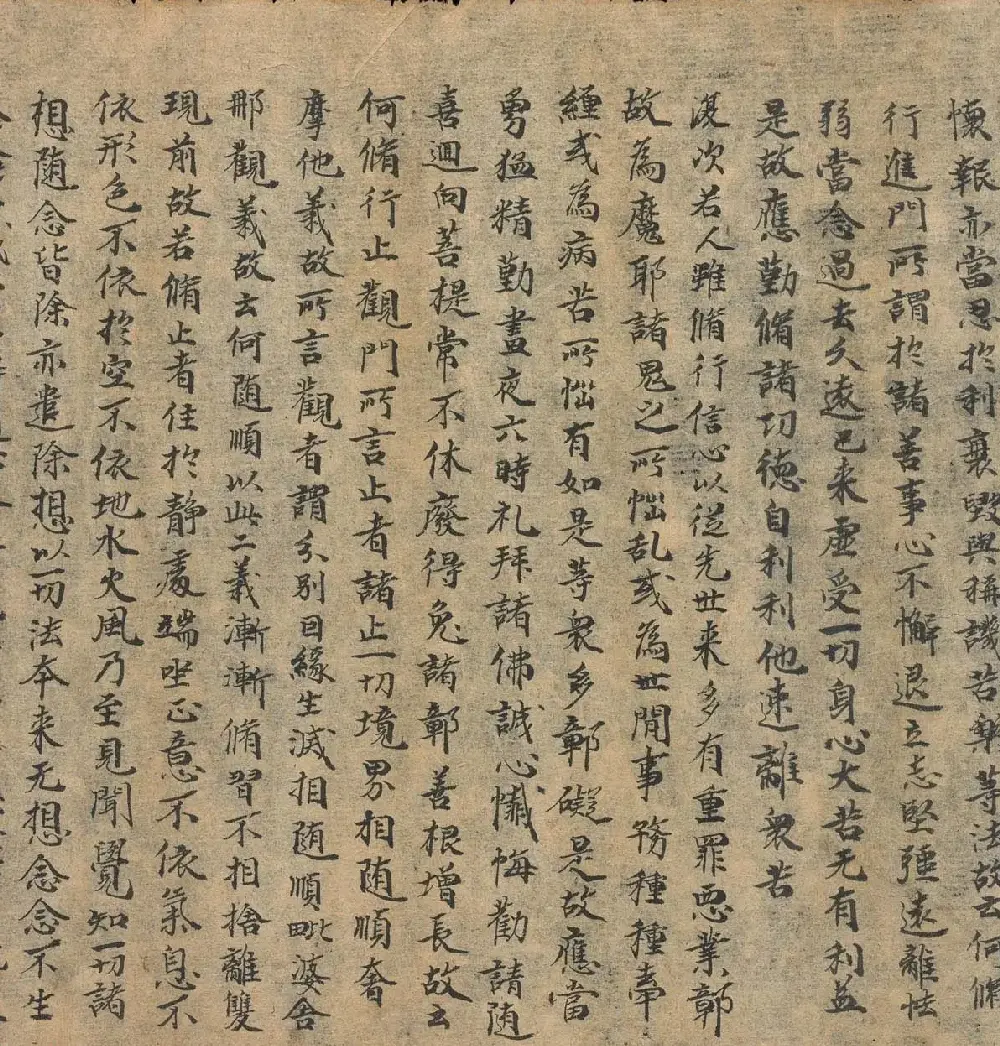 懷報亦當忍於利襄毀與稱譏苦樂等法故云何脩
行進門所謂於諸善事心不懈退立志堅強遠離怯
弱當念過去久遠已来虛受一切身心大苦无有利益
是故應勤脩諸功德自利利他速離衆苦
復次若人雖脩行信心以從先世来多有重罪惡業鄣
故為魔耶諸鬼之所惱乱或為世間事務種種牽
纏或為病苦所惱有如是等衆多鄣礙是故應當
勇猛精勤晝夜六時礼拜諸佛誠心懺悔勸請随
喜迴向菩提常不休廢得免諸鄣善根增長故云
何脩行止觀門所言止者諸止一切境界相随順奢
摩他義故所言觀者謂分別因緣生滅相随順毗婆舍
那觀義故云何随順以此二義漸漸脩習不相捨離雙
現前故若脩止者住於靜處端坐正意不依氣息不
依形色不依於空不依地水火風乃至見聞覺知一切諸
想随念皆除亦遣除想以一切法本来无想念念不生